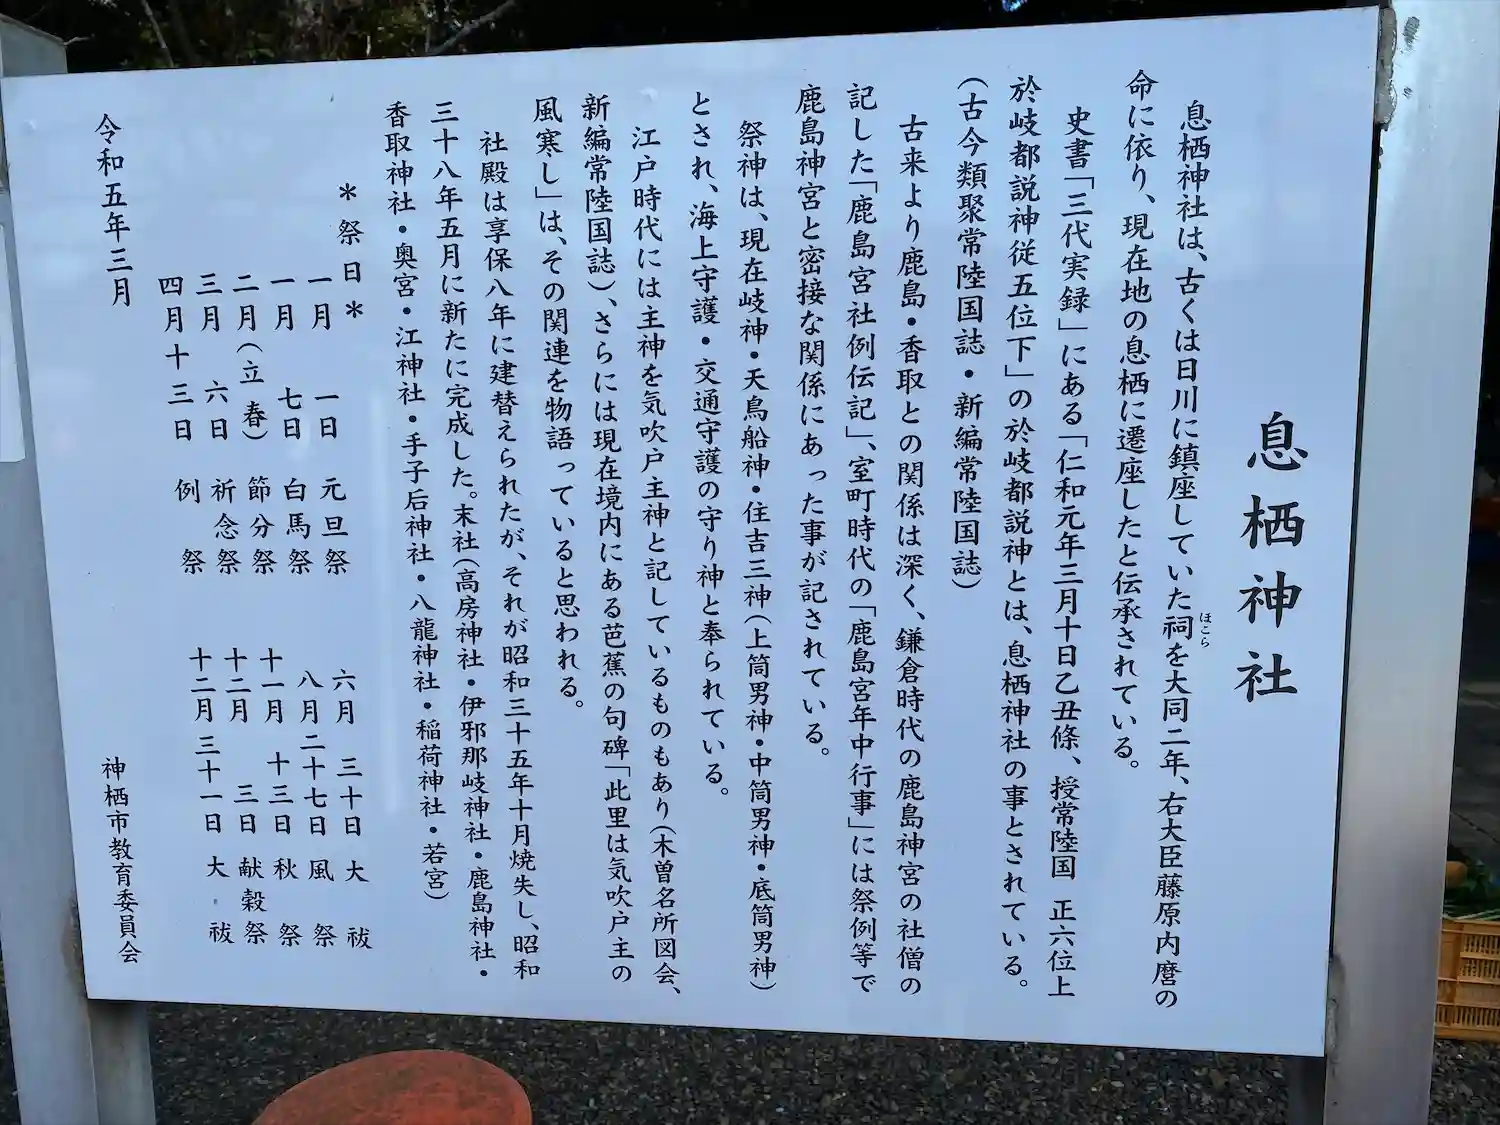 息栖神社
息栖神社は、古くは日川に鎮座していた祠を大同二年、右大臣藤原内麿の
ほこら
命に依り、現在地の息栖に遷座したと伝承されている。
史書「三代実録」にある「仁和元年三月十日乙丑條、授常陸国　正六位上
於岐都説神従五位下」の於岐都説神とは、息栖神社の事とされている。
（古今類聚常陸国誌・新編常陸国誌）
古来より鹿島・香取との関係は深く、鎌倉時代の鹿島神宮の社僧の
記した「鹿島宮社例伝記」、室町時代の「鹿島宮年中行事」には祭例等で
鹿島神宮と密接な関係にあった事が記されている。
祭神は、現在岐神・天鳥船神・住吉三神（上筒男神・中筒男神・底筒男神）
とされ、海上守護・交通守護の守り神と奉られている。
江戸時代には主神を気吹戸主神と記しているものもあり（木曽名所図会、
新編常陸国誌）、さらには現在境内にある芭蕉の句碑「此里は気吹戸主の
風寒し」は、その関連を物語っていると思われる。
社殿は享保八年に建替えられたが、それが昭和三十五年十月焼失し、昭和
三十八年五月に新たに完成した。末社（高房神社・伊邪那岐神社・鹿島神社・
香取神社・奥宮・江神社・手子后神社・八龍神社・稲荷神社・若宮）
＊祭日＊
一月　一日　元旦祭
一月　七日　白馬祭
二月（立春）　節分祭
三月　六日　祈念祭
四月十三日　例祭
六月　三十日　大祓
八月二十七日　風祭
十一月　十三日　秋祭
十二月　三日　献穀祭
十二月　三十一日　大祓
令和五年三月
神栖市教育委員会